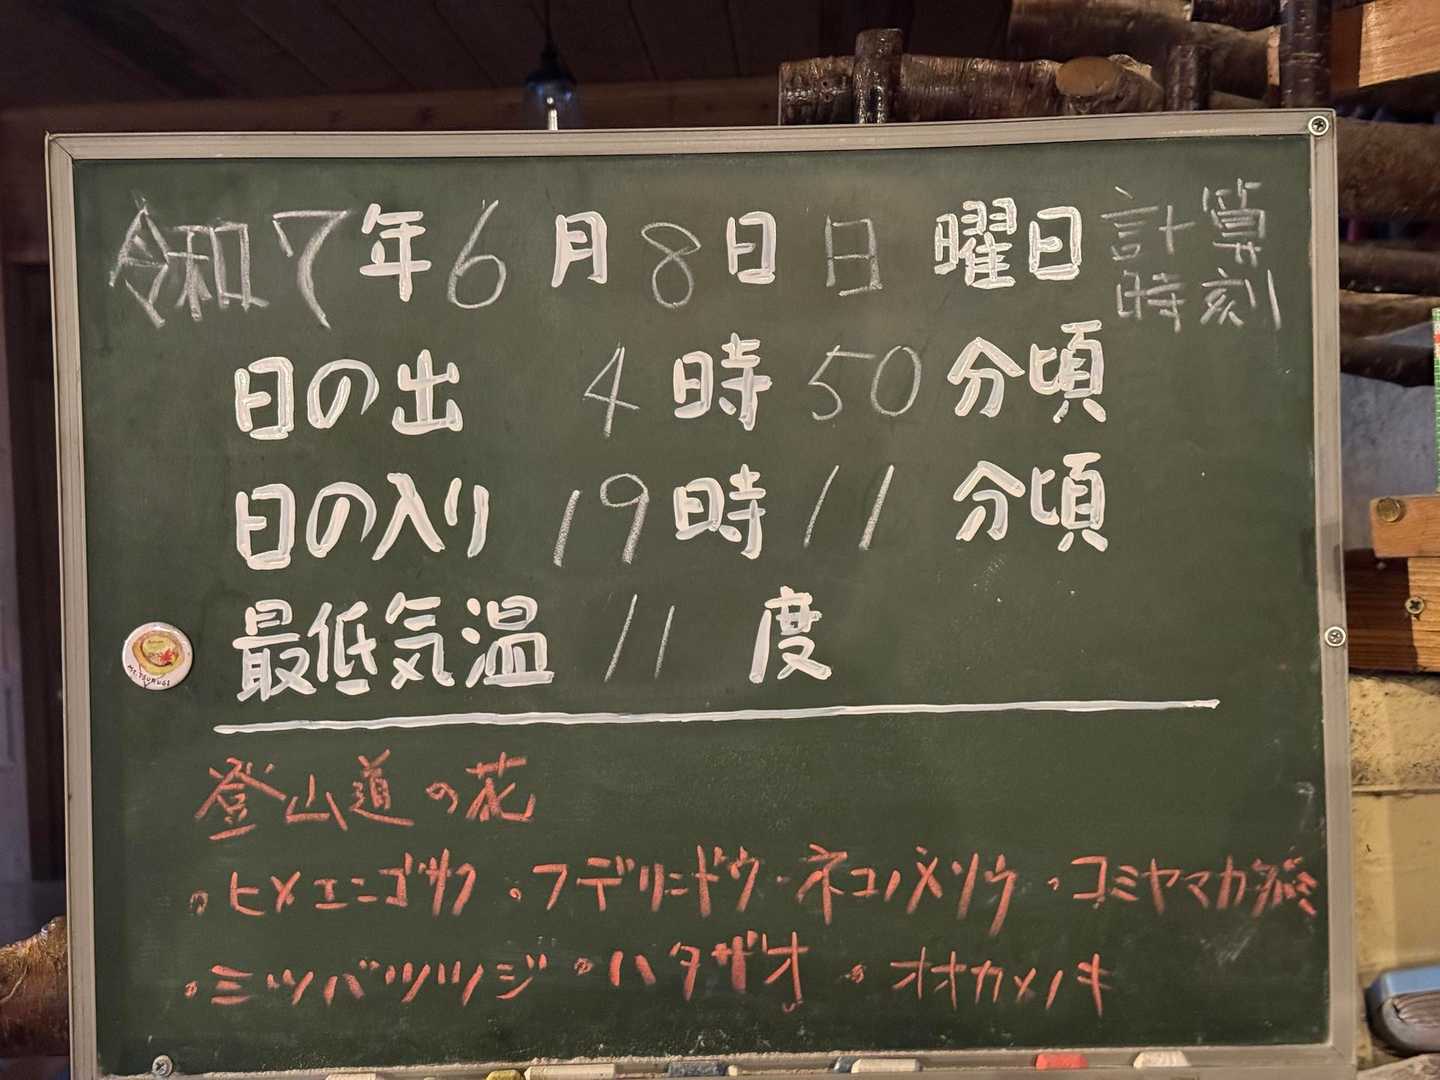 令和7年6月8日 日 曜日 計算
時刻
日の出 4時50分頃
日の入り 19時11分頃
最低気温 11度
MT.TSURUGI
登山道の花
・ヒメエンゴサク ・フデリンドウ・ネコノメソウ ・コミヤマカタバミ
・ミツバツツジ ・ハタザオ ・オオカメノキ